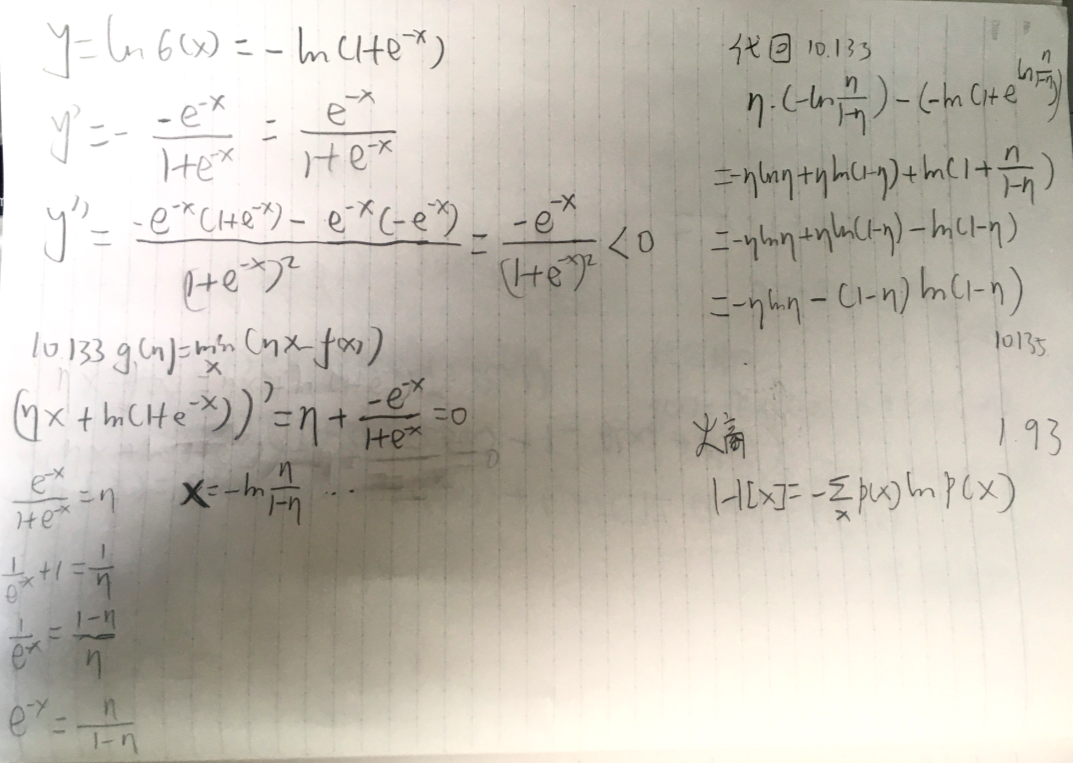 y = ln σ(x) = - ln(1+e^{-x})
y' = - \frac{-e^{-x}}{1+e^{-x}} = \frac{e^{-x}}{1+e^{-x}}
y'' = \frac{-e^{-x}(1+e^{-x}) - e^{-x}(-e^{-x})}{(1+e^{-x})^2} = \frac{-e^{-x}}{(1+e^{-x})^2} < 0
10.133 g(η) = min_x (ηx - f(x))
(ηx + ln(1+e^{-x}))' = η + \frac{-e^{-x}}{1+e^{-x}} = 0
\frac{e^{-x}}{1+e^{-x}} = η    x = -ln \frac{η}{1-η} ...
\frac{1}{e^{-x}} + 1 = \frac{1}{η}
\frac{1}{e^{-x}} = \frac{1-η}{η}
e^{-x} = \frac{η}{1-η}
代回 10.133
η·(-ln \frac{η}{1-η}) - (-ln(1+e^{ln \frac{η}{1-η}}))
= -η lnη + η ln(1-η) + ln(1 + \frac{η}{1-η})
= -η lnη + η ln(1-η) - ln(1-η)
= -η lnη - (1-η) ln(1-η)
10135
1.93
H[x] = -Σ_x p(x) ln p(x)